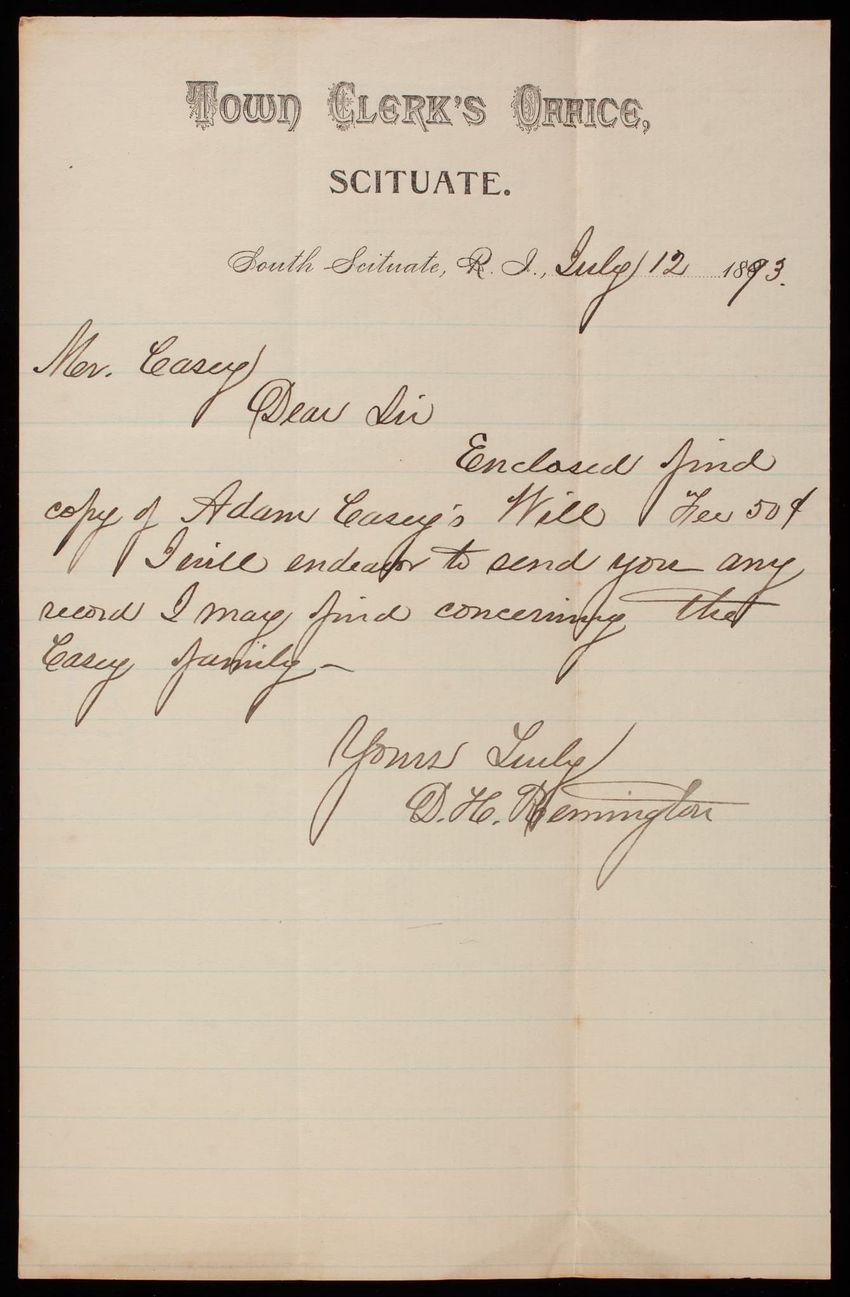 Town Clerk's Office,
SCITUATE.
South Scituate, R. I., July 12 1893.
Mr. Casey
Dear Sir
Enclosed find
copy of Adam Casey's Will Fee 50¢
I will endeavor to send you any
record I may find concerning the
Casey family—
Yours Truly
D. H. Remington